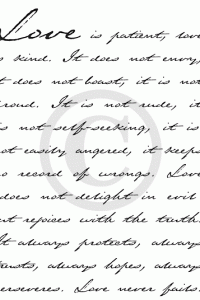 Love is patient, love
is kind. It does not envy,
it does not boast, it is not
proud. It is not rude, it
is not self-seeking, it is
not easily angered, it keeps
no record of wrongs. Love
does not delight in evil
but rejoices with the truth.
It always protects, always
trusts, always hopes, always
perseveres. Love never fails.
©